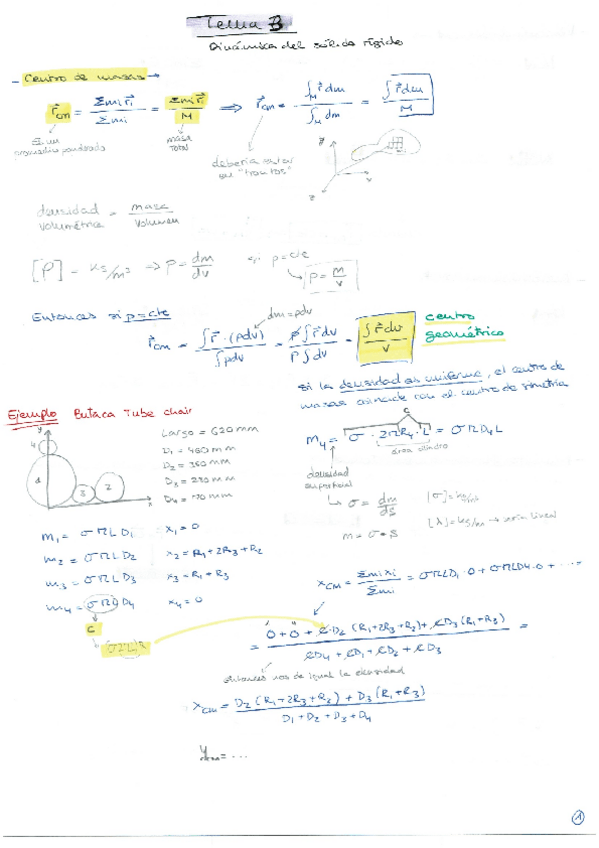 Tema 3
Dinámica del sólido rígido
- Centro de masas →
r⃗cm = Σmi r⃗i / Σmi = Σmi r⃗i / M ⇒ r⃗cm = ∫M r⃗dm / ∫M dm = ∫r⃗dm / M
Es un promedio ponderado
masa total
debería estar en "trocitos"
z
y
x
densidad volumétrica = masa / volumen
[ρ] = kg/m³ ⇒ ρ = dm/dv si ρ=cte → ρ = m/v
Entonces si ρ=cte
dm=ρdv
r⃗cm = ∫r⃗·(ρdv) / ∫ρdv = ρ∫r⃗dv / ρ∫dv = ∫r⃗dv / v
centro geométrico
Si la densidad es uniforme, el centro de
masas coincide con el centro de simetría
Ejemplo Butaca Tube chair
y
x
4
1
3
2
Largo = 620mm
D₁ = 460 mm
D₂ = 350 mm
D₃ = 230 mm
D₄ = 170 mm
C
m₄ = σ · 2πR₄ · L = σπD₄L
área cilindro
densidad superficial
↳ σ = dm/ds
m = σ·S
[λ]=kg/m → sería lineal
m₁ = σπLD₁ x₁=0
m₂ = σπLD₂ x₂=R₁+2R₃+R₂
m₃ = σπLD₃ x₃=R₁+R₃
m₄ = σπLD₄ x₄=0
C
xcm = Σmixi / Σmi = σπLD₁·0+σπLD₄·0+····
= 0+0+C·D₂(R₁+2R₃+R₂)+CD₃(R₁+R₃) / CD₄+CD₁+CD₂+CD₃ =
entonces nos da igual la densidad
xcm = D₂(R₁+2R₃+R₂)+D₃(R₁+R₃) / D₁+D₂+D₃+D₄
ycm = ...
1